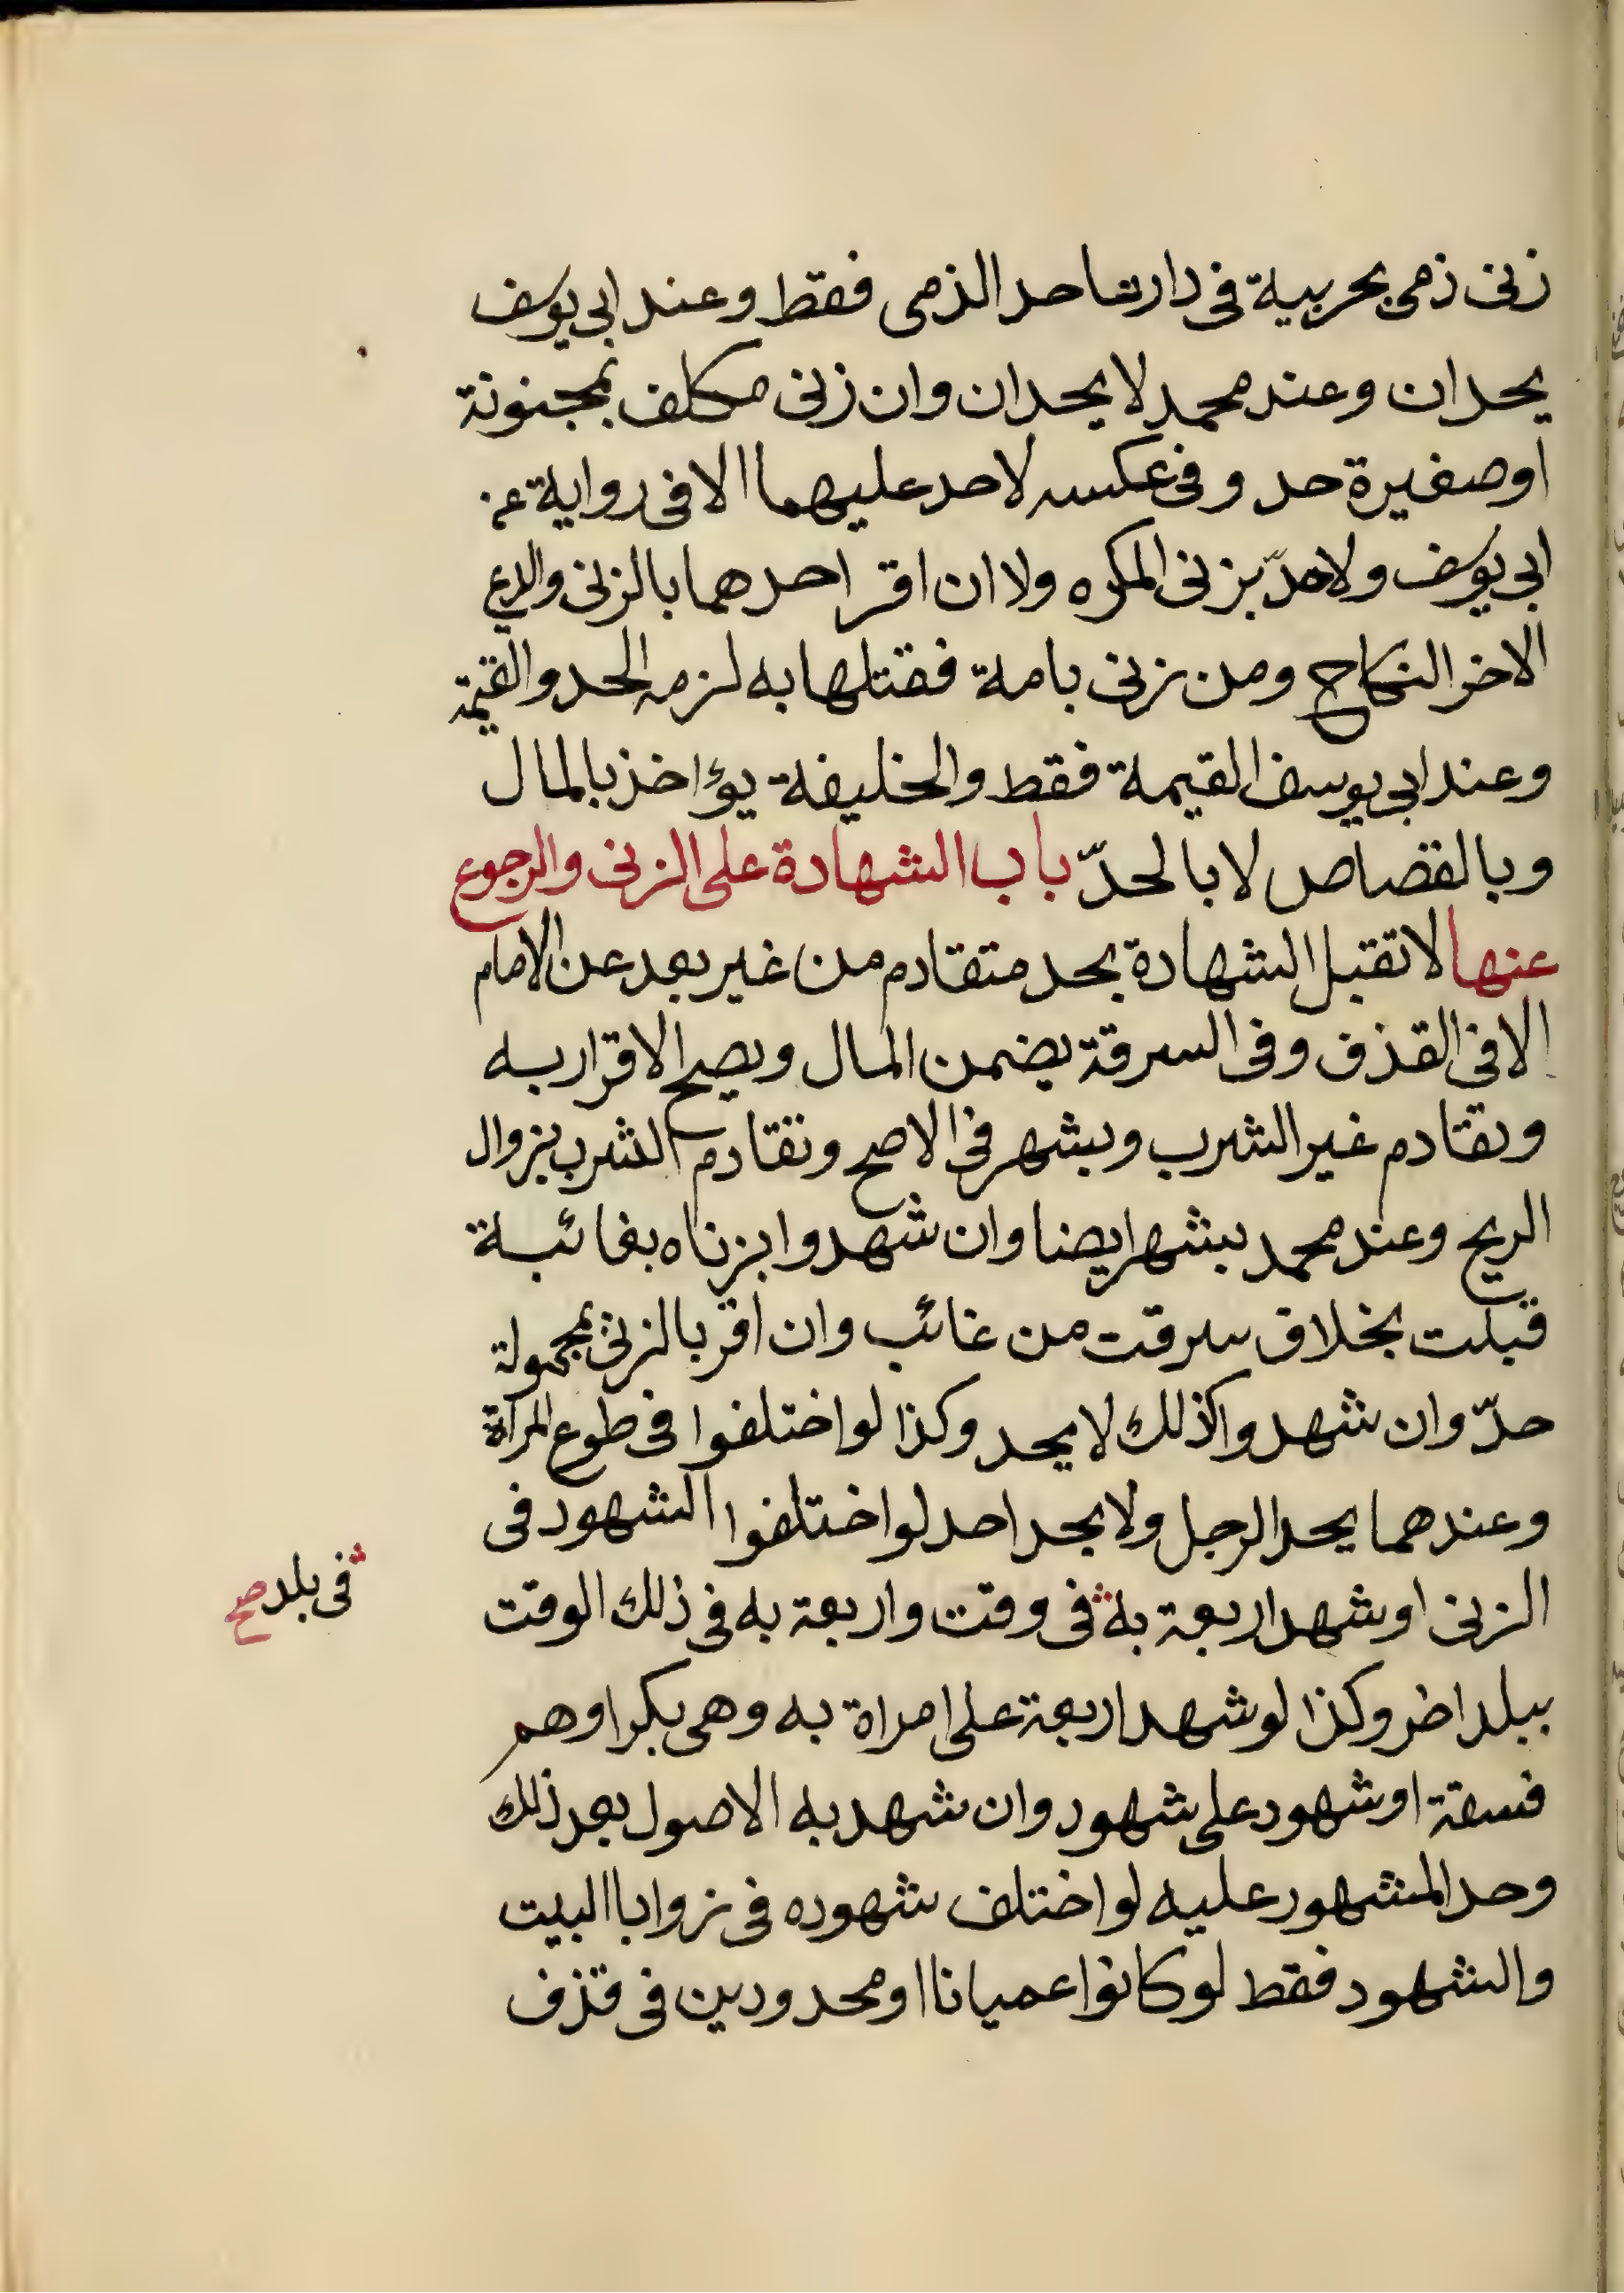 زنى ذمى بحربية فى دارنا حد الذمى فقط وعند ابى يوسف
يحدان وعند محمد لا يحدان وان زنى مكلف بمجنونة
او صغيرة حد وفى عكسه لا حد عليهما الا فى رواية عن
ابى يوسف ولا حدّ بزنى المكره ولا ان اقر احدهما بالزنى وادعى
الاخر النكاح ومن زنى بامة فقتلها به لزمه الحد والقيمة
وعند ابى يوسف القيمة فقط والخليفة يؤاخذ بالمال
وبالقصاص لا بالحدّ باب الشهادة على الزنى والرجوع
عنها لا تقبل الشهادة بحد متقادم من غير بعد عن الامام
الا فى القذف وفى السرقة يضمن المال ويصح الاقرار به
وتقادم غير الشرب وبشهر فى الاصح وتقادم الشرب بزوال
الريح وعند محمد بشهر ايضا وان شهدوا بزناه بغائبة
قبلت بخلاف سرقت من غائب وان اقر بالزنى بمجهولة
حدّ وان شهدوا كذلك لا يحد وكذا لو اختلفوا فى طوع المرآة
وعندهما يحد الرجل ولا يحد احد لو اختلفوا الشهود فى
الزنى او شهد اربعة به فى وقت واربعة به فى ذلك الوقت
ببلد اخر وكذا لو شهد اربعة على امراة به وهى بكر او هم
فسقة او شهود على شهود وان شهد به الاصول بعد ذلك
وحد المشهور عليه لو اختلف شهوده فى زوايا البيت
والشهود فقط لو كانوا عميانا او محدودين فى قذف
فى بلد صح